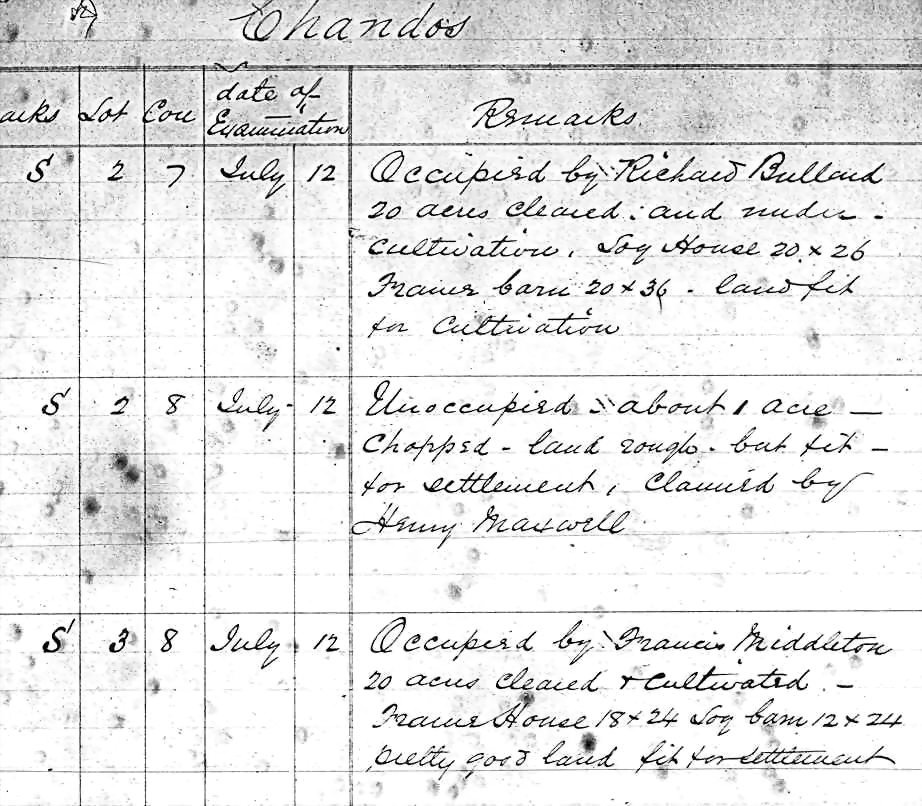 Chandos
arks Lot Con date of Examination Remarks
S 2 7 July 12 Occupied by Richard Bullard
20 acres cleared and under
cultivation. Log House 20 x 26
Frame barn 20 x 36 - land fit
for cultivation
S 2 8 July 12 Unoccupied - about 1 acre -
Chopped - land rough - but fit -
for settlement, claimed by
Henry Maxwell
S 3 8 July 12 Occupied by Francis Middleton
20 acres cleared & cultivated -
Frame House 18 x 24 Log barn 12 x 24
pretty good land fit for settlement